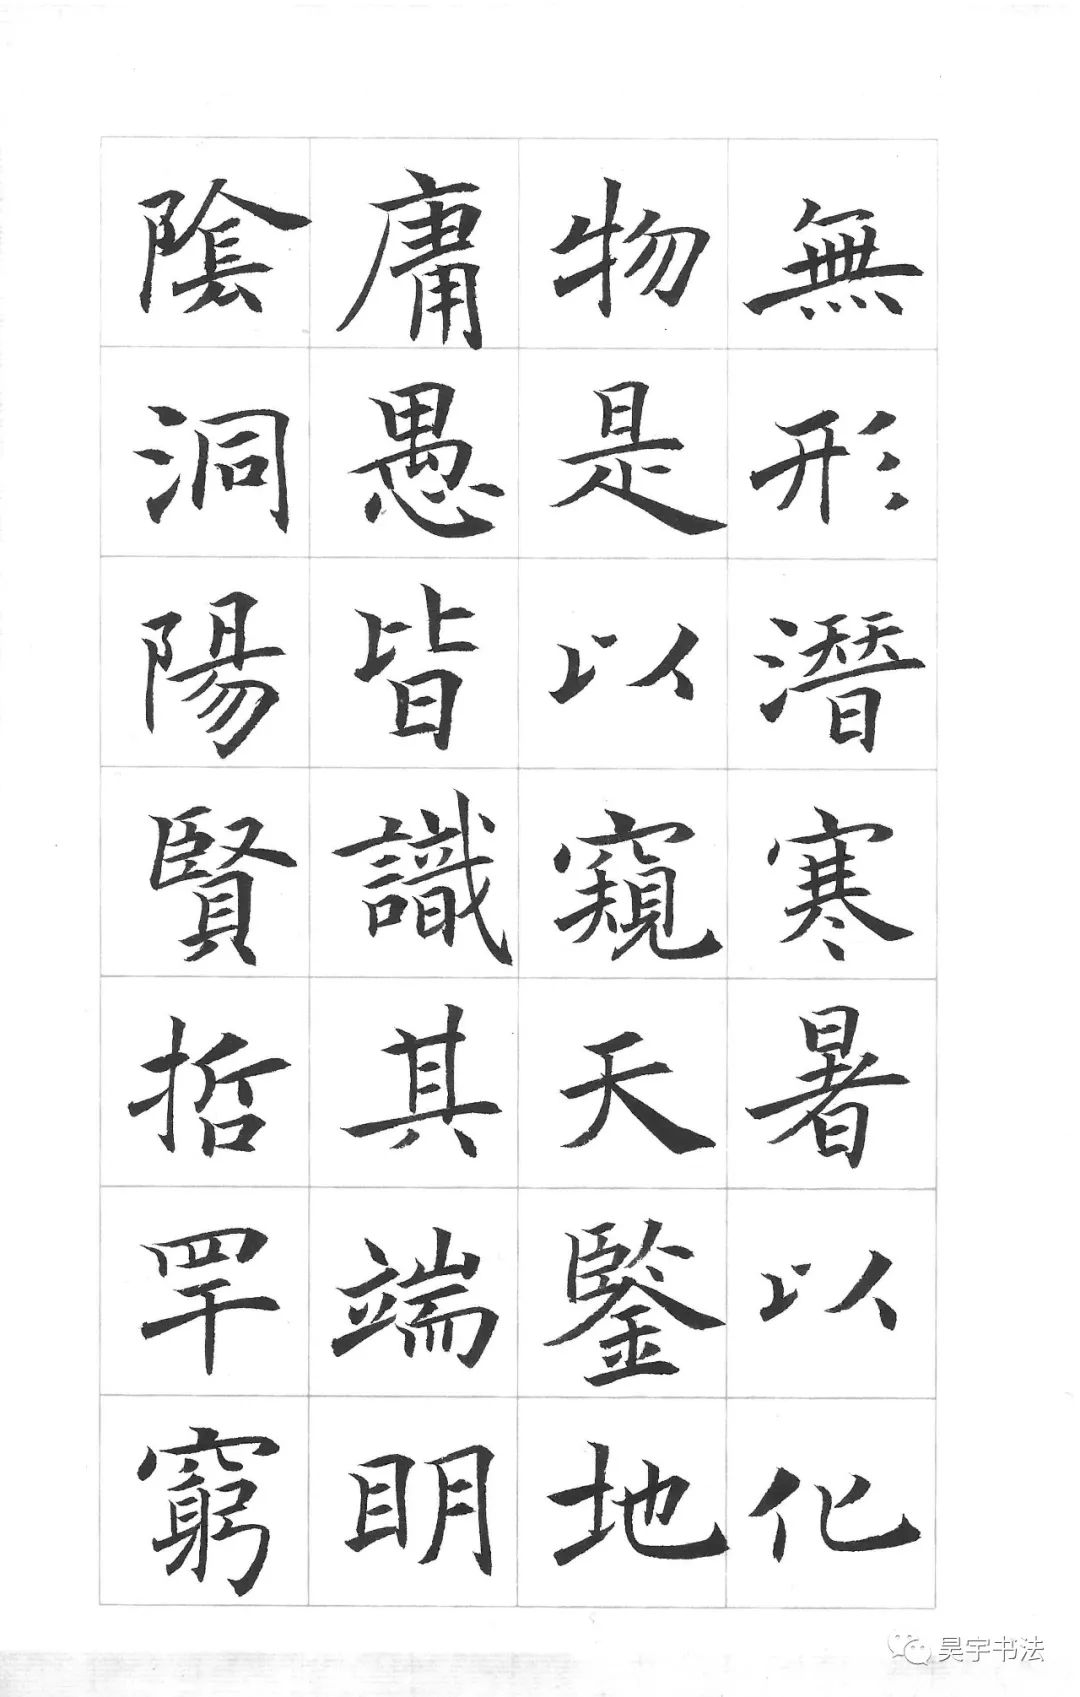 無形潛寒暑以化
物是以窺天鑒地
庸愚皆識其端明
陰洞陽賢哲罕窮
昊宇书法